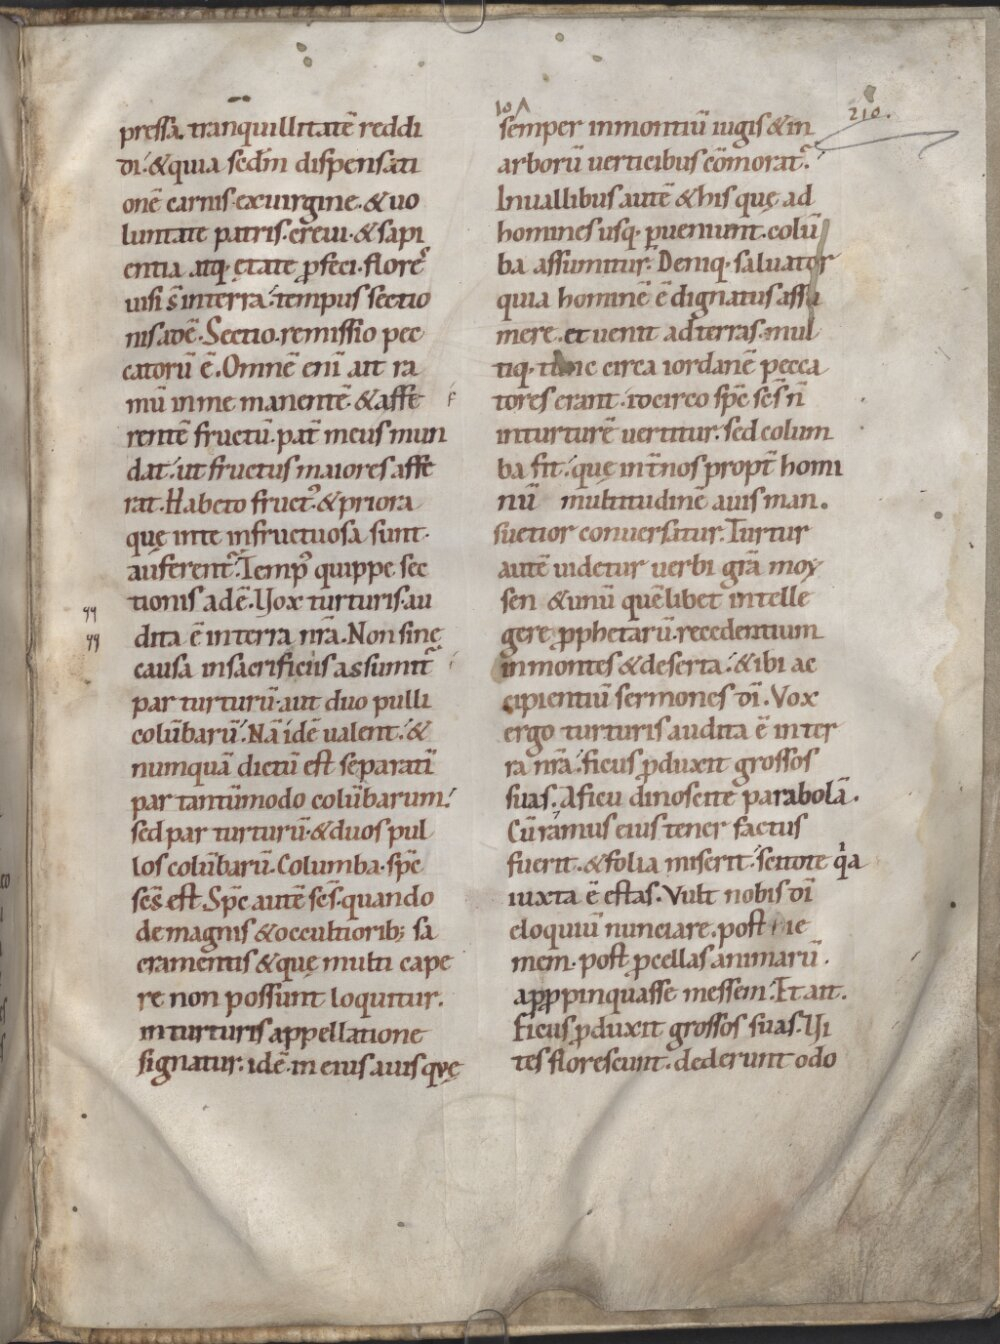 210.
pressa. tranquillitatē reddi
di. & quia sedm̄ dispensati
onē carnis. ex uirgine. & uo
luntate patris. creui. & sapi
entia atq. ętate ꝓfeci. flores
uisi s̄ in terra. tempus sectio
nis adē. Sectio. remissio pec
catorū ē. Omnē enī ait ra
mū in me manentē. & affe
rentē fructū. pat̄ meus mun
dat. ut fructus maiores affe
rat. Habeto fruct᾽. & priora
quę in te infructuosa sunt.
auferent᾽. Temp᾽ quippe sec
tionis adē. Vox turturis. au
dita ē in terra nr̄a. Non sinę
causa in sacrificiis assumit᾽
par turturū. aut duo pulli
colūbarū. Nā idē ualent. &
numquā dictū est separatī
par tantūmodo colūbarum.
sed par turturū. & duos pul
los colūbarū. Columba. sp̄c
sc̄s est. Sp̄c autē sc̄s. quando
de magnis & occultiorib; sa
cramentis & quę multi cape
re non possunt loquitur.
in turturis appellatione
signatur. idē. in eius auis quę
semper in montiū iugis & in
arborū uerticibus cōmorat᾽.
In uallibus autē & his quę ad
homines usq. ꝑueniunt. colū
ba assumitur. Deniq. saluator
quia hominē ē dignatus assu
mere. et uenit ad terras. mul
tiq. tunc circa iordanē pecca
tores erant. idcirco sp̄c sc̄s n̄
in turturē uertitur. sed colum
ba fit. quę int̄ nos propt̄ homi
nū multitudinē auis man.
suetior conuersatur. Turtur
autē uidetur uerbi gr̄a moy
sen & unū quēlibet intelle
gere ꝓphetarū. recedentium
in montes & deserta. & ibi ac
cipientiū sermones dī. Vox
ergo turturis audita ē in ter
ra nr̄a. ficus ꝓduxit grossos
suas. A ficu dinoscite parabolā.
Cū ramus eius tener factus
fuerit. & folia miserit. scitote qa
iuxta ē estas. Vult nobis dī
eloquiū nunciare. post hie
mem. post ꝓcellas animarū.
apꝓpinquasse messem. Et ait.
Ficus ꝓduxit grossos suas. Vi
tes florescunt. dederunt odo